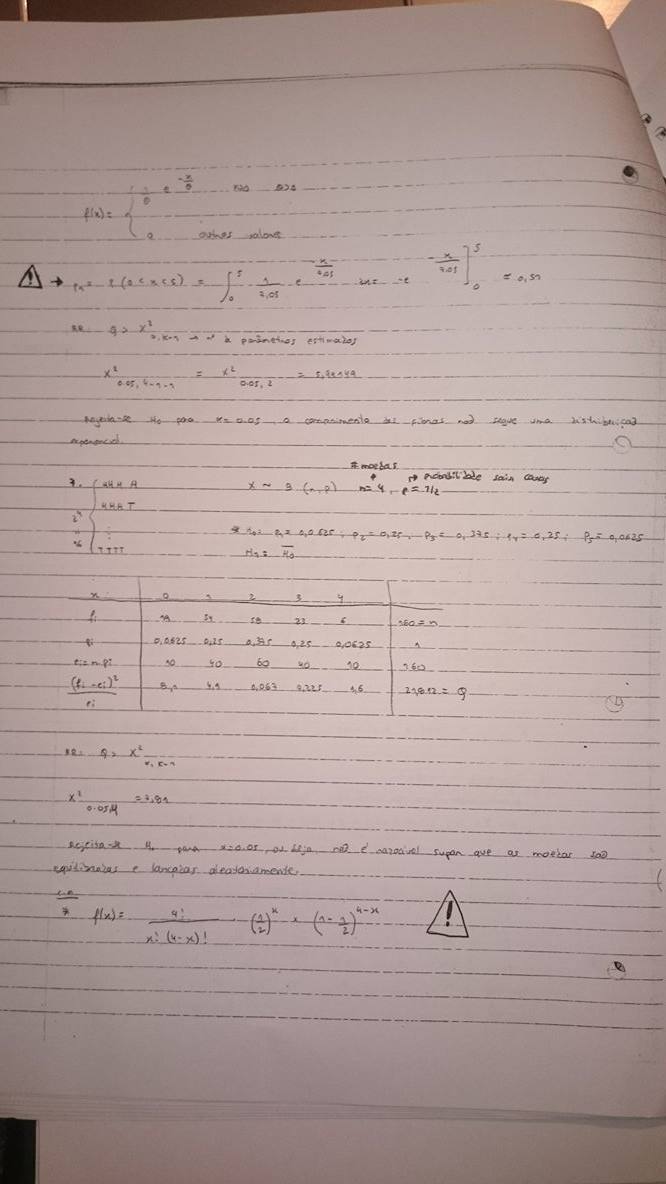 f(x)= { 1/θ e^(-x/θ) x>0 θ>0
0 outros valores
→ P1= P(0<x<5) = ∫_0^5 1/7,05 e^(-x/7,05) dx= -e^(-x/7,05) ]_0^5 = 0,51
RR: Q > X²
→ nº de parâmetros estimados
X²_0.05, 4-1-1 = X²_0.05, 2 = 5,99149
Rejeita-se H0 para α=0.05, o comprimento das fibras não segue uma distribuição
exponencial.
# moedas
7. HHHH X ~ B (n,p) n=4, p=1/2 → probabilidade sair caras
HHHT
2⁴ ⋮ * H0: p1=0,0625; p2=0,25, p3=0,375; p4=0,25; p5=0,0625
"
16 TTTT H1: H0
x 0 1 2 3 4
fi 54 58 23 6 160=n
pi 0,0625 0,25 0,375 0,25 0,0625 1
ei=n.pi 10 40 60 40 10 160
(fi-ei)²/ei 4,9 0,067 7,225 1,6 = Q
RR: Q > X²_α, k-1
X²_0.05,4
Rejeita-se H0 para α=0.05, ou seja não é razoável supor que as moedas são
equilibradas e lançadas aleatoriamente.
c.a
* f(x)= 4!/x!(4-x)! · (1/2)^x × (1-1/2)^4-x !